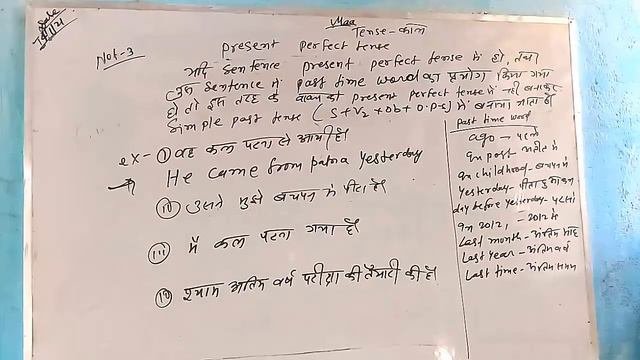 Date
Maa
Tense - काल
Not-3
Present perfect tense
यदि Sentence present perfect tense में हो, तथा
उस Sentence में past time word का प्रयोग किया गया
हो तो इस तरह के वाक्य को present perfect tense में नहीं बनाकर
Simple past tense (S+V₂+Ob+O.P.S) में बनाया जाता है
ex- (i) वह कल पटना से आयी है।
→ He came from patna yesterday
(ii) उसने मुझे बचपन में पीटा है।
(iii) मैं कल पटना गया हूँ।
(iv) श्याम अंतिम वर्ष परीक्षा की तैयारी की है।
Past time word
ago - पहले
In past - अतीत में
In childhood - बचपन में
Yesterday - बीता हुआ कल
day before yesterday - परसों
In 2012, - 2012 में
Last month - अंतिम माह
Last year - अंतिम वर्ष
Last time - अंतिम समय